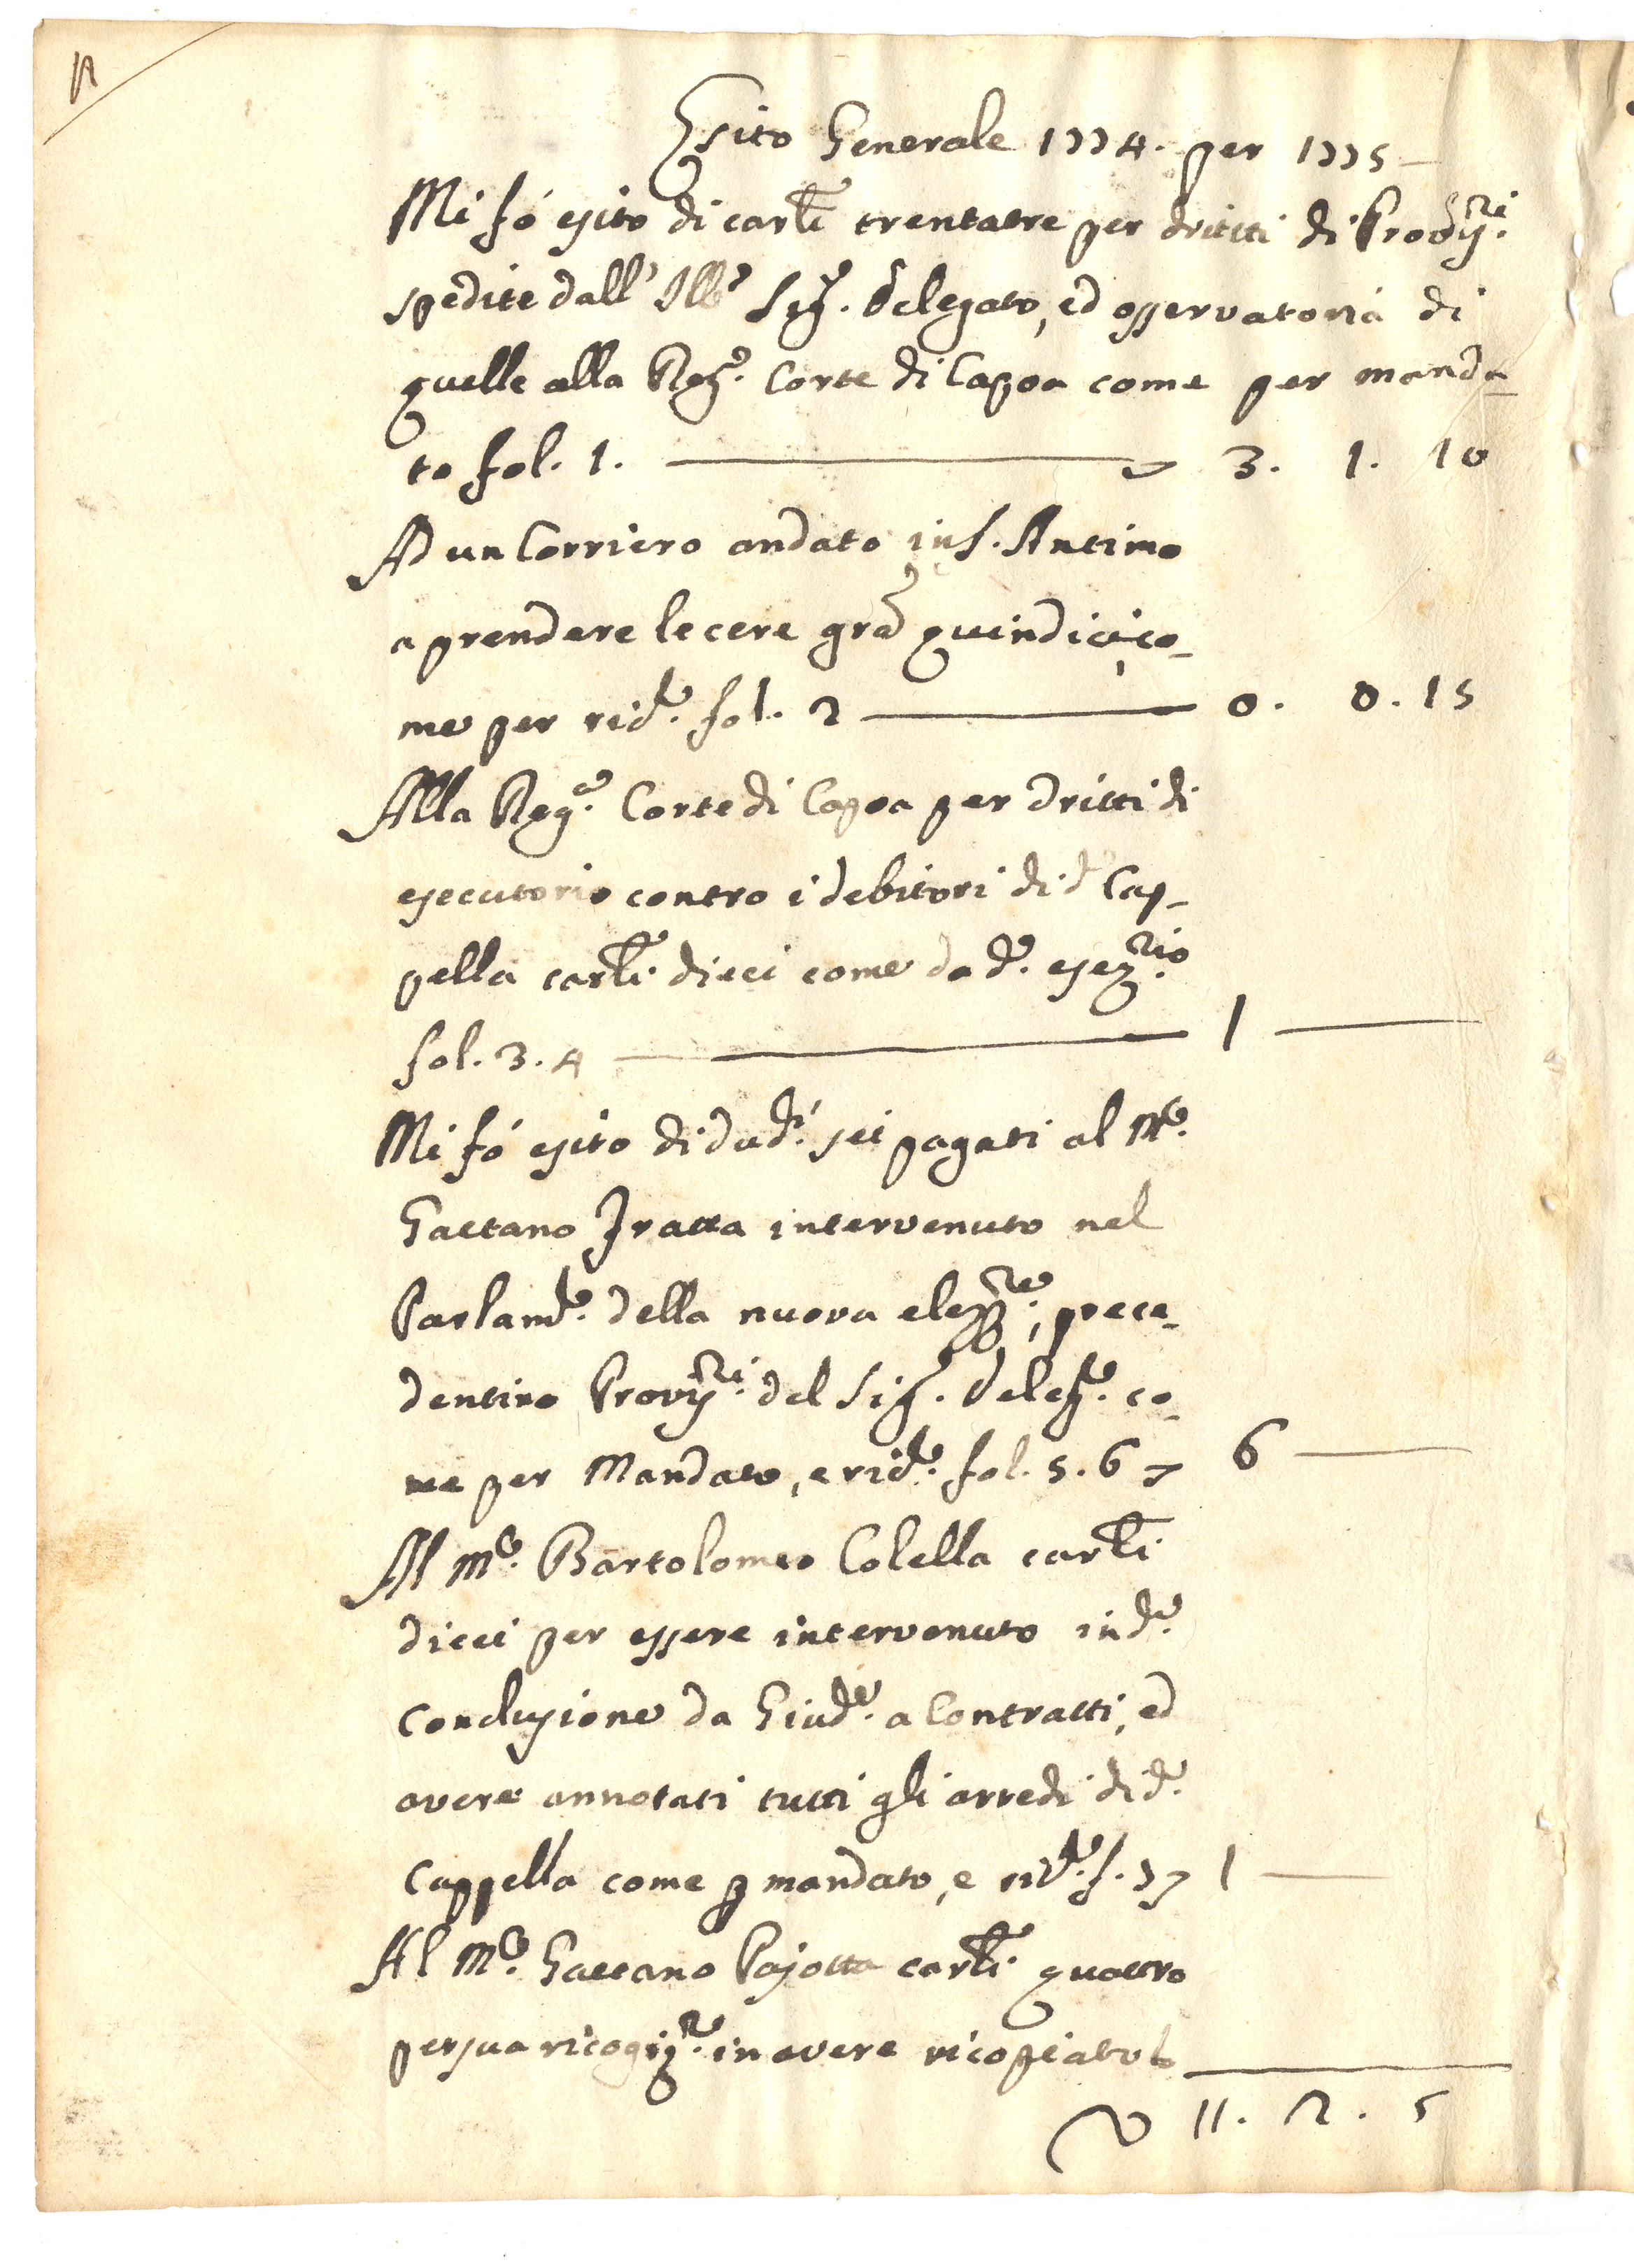 Esito Generale 1774. per 1775
Mi fó esito di carlⁱ trentatre per dritti di Provisⁿⁱ.
spedite dall' Illᵉ Sigʳ. Delegato, ed osservatoria di
quelle alla Regᵃ. Corte di Capoa come per manda-
to fol. 1. 3. 1. 10
Ad un Corriero andato in S. Antimo
a prendere le cere grᵃ quindici, co-
me per ricᵉ. fol. 2 0. 0. 15
Alla Regᵃ. Corte di Capoa per dritti di
esecutorio contro i debitori di dᵃ Cap-
pella carlⁱ. dieci come da dᵒ. esez.ʳⁱᵒ
fol. 3. 4 1
Mi fó esito di ducⁱ. sei pagati al Mᶜᵒ.
Gaetano Iratta intervenuto nel
Parlamᵗᵒ. della nuova elezⁿᵉ., prece-
dentino Provisⁿⁱ. del Sigʳ. Delegᵗᵒ. co-
me per Mandato, e ricᵉ. fol. 5. 6 6
Al Mᶜᵒ. Bartolomeo Colella carlⁱ
dieci per essere intervenuto in dᵃ.
conclusione da Giudᵉ. a Contratti, ed
avere annotati tutti gli arredi di dᵃ.
Cappella come p mandato, e ricᵉ. f. 7 1
Al Mᶜᵒ. Gaetano Pajotta carlⁱ. quattro
per sua ricogizⁿᵉ. in avere ricopiato
11. 2. 5